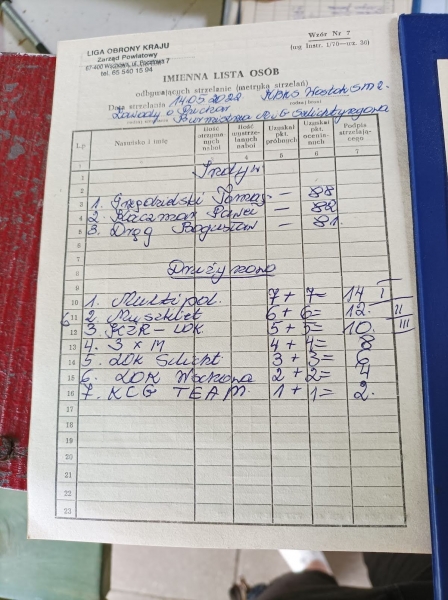 LIGA OBRONY KRAJU
Zarząd Powiatowy
67-400 Wschowa, ul.
tel. 65 540 15 94
Wzór Nr 7
(wg Instr. 1/70—uz. 36)
IMIENNA LISTA OSÓB
odbywających strzelanie (metryka strzelań)
Data strzelania 14.05.2022
rodzaj broni
Zawody o Puchar
Burmistrza
L.p. Nazwisko i imię Ilość otrzyma nych naboi Ilość wystrze- lanych naboi Uzyskał pkt. próbnych Uzyskał pkt. ocenia- nych Podpis strzelają- cego
1 2 3 4 5 6 7
1 Indyw.
2
3 1. Tomasz — 88
4 2. Kaczmar Paweł — 82
5 3. Drąg Bogusław — 81.
6
7
8 Drużynowo
9
10 1. Multipol. 7+7= 14 I
11 2. Muszkiet 6+6= 12. II
12 3. KŻR-LOK 5+5= 10. III
13 4. 3 x M 4+4= 8
14 5. LOK Szlicht 3+3= 6
15 6. LOK Wschowa 2+2= 4
16 7. KCG TEAM. 1+1= 2.
17
18
19
20
21
22
23